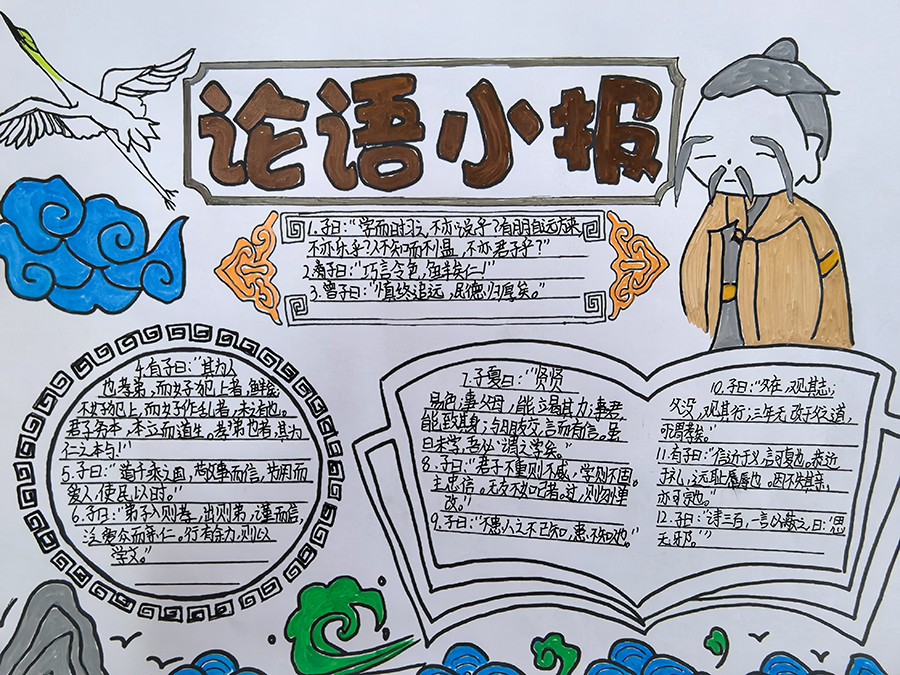 论语小报
1.子曰:“学而时习之,不亦说乎?有朋自远方来
不亦乐乎?人不知而不愠,不亦君子乎?”
2.子曰:“巧言令色,鲜矣仁!”
3.曾子曰:“慎终追远,民德归厚矣。”
4.有子曰:“其为人
也孝弟,而好犯上者,鲜矣
不好犯上,而好作乱者,未之有也。
君子务本,本立而道生。孝弟也者,其为
仁之本与!”
5.子曰:“道千乘之国,敬事而信,节用而
爱人,使民以时。”
6.子曰:“弟子入则孝,出则弟,谨而信,
泛爱众而亲仁。行有余力,则以
学文。”
7.子夏曰:“贤贤
易色;事父母,能立竭其力;事君,
能致其身;与朋友交,言而有信。虽
曰未学,吾必谓之学矣。”
8.子曰:“君子不重则不威,学则不固。
主忠信。无友不如己者。过,则勿惮
改。”
9.子曰:“不患人之不己知,患不知人也。”
10.子曰:“父在,观其志;
父没,观其行;三年无改于父之道,
可谓孝矣。”
11.有子曰:“信近于义,言可复也。恭近
于礼,远耻辱也。因不失其亲,
亦可宗也。”
12.子曰:“诗三百,一言以蔽之,曰:‘思
无邪。’”